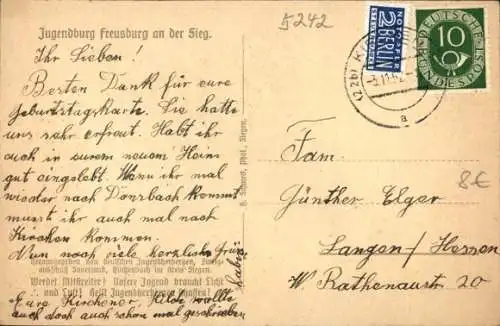 Jugendburg Freusburg an der Sieg.
Ihr Lieben!
Besten Dank für eure
Geburtstagskarte. Sie hatte
uns sehr erfreut. Habt ihr
auch in eurem neuen Heim
gut eingelebt. Wenn ihr mal
wieder nach Donsbach kommt
müsst ihr auch mal nach
Kirchen kommen.
Nun noch viele herzliche Grüße
Herausgegeben vom Deutschen Jugendherbergen,
Sauerland, im Kreis Siegen.
Werdet Mitstreiter! Unsere Jugend braucht Licht
und Luft! Helft Jugendherbergen schaffen!
Eure Kirchener. Hilde wollte
auch doch auch schon mal geschrieben
haben
5242
NOTOPFER
2 BERLIN
STEUERMARKE
DEUTSCHE
10
BUNDESPOST
(22b)
a
Fam.
Günther Elger
8€
Langen/Hessen
W. Rathenaustr 20